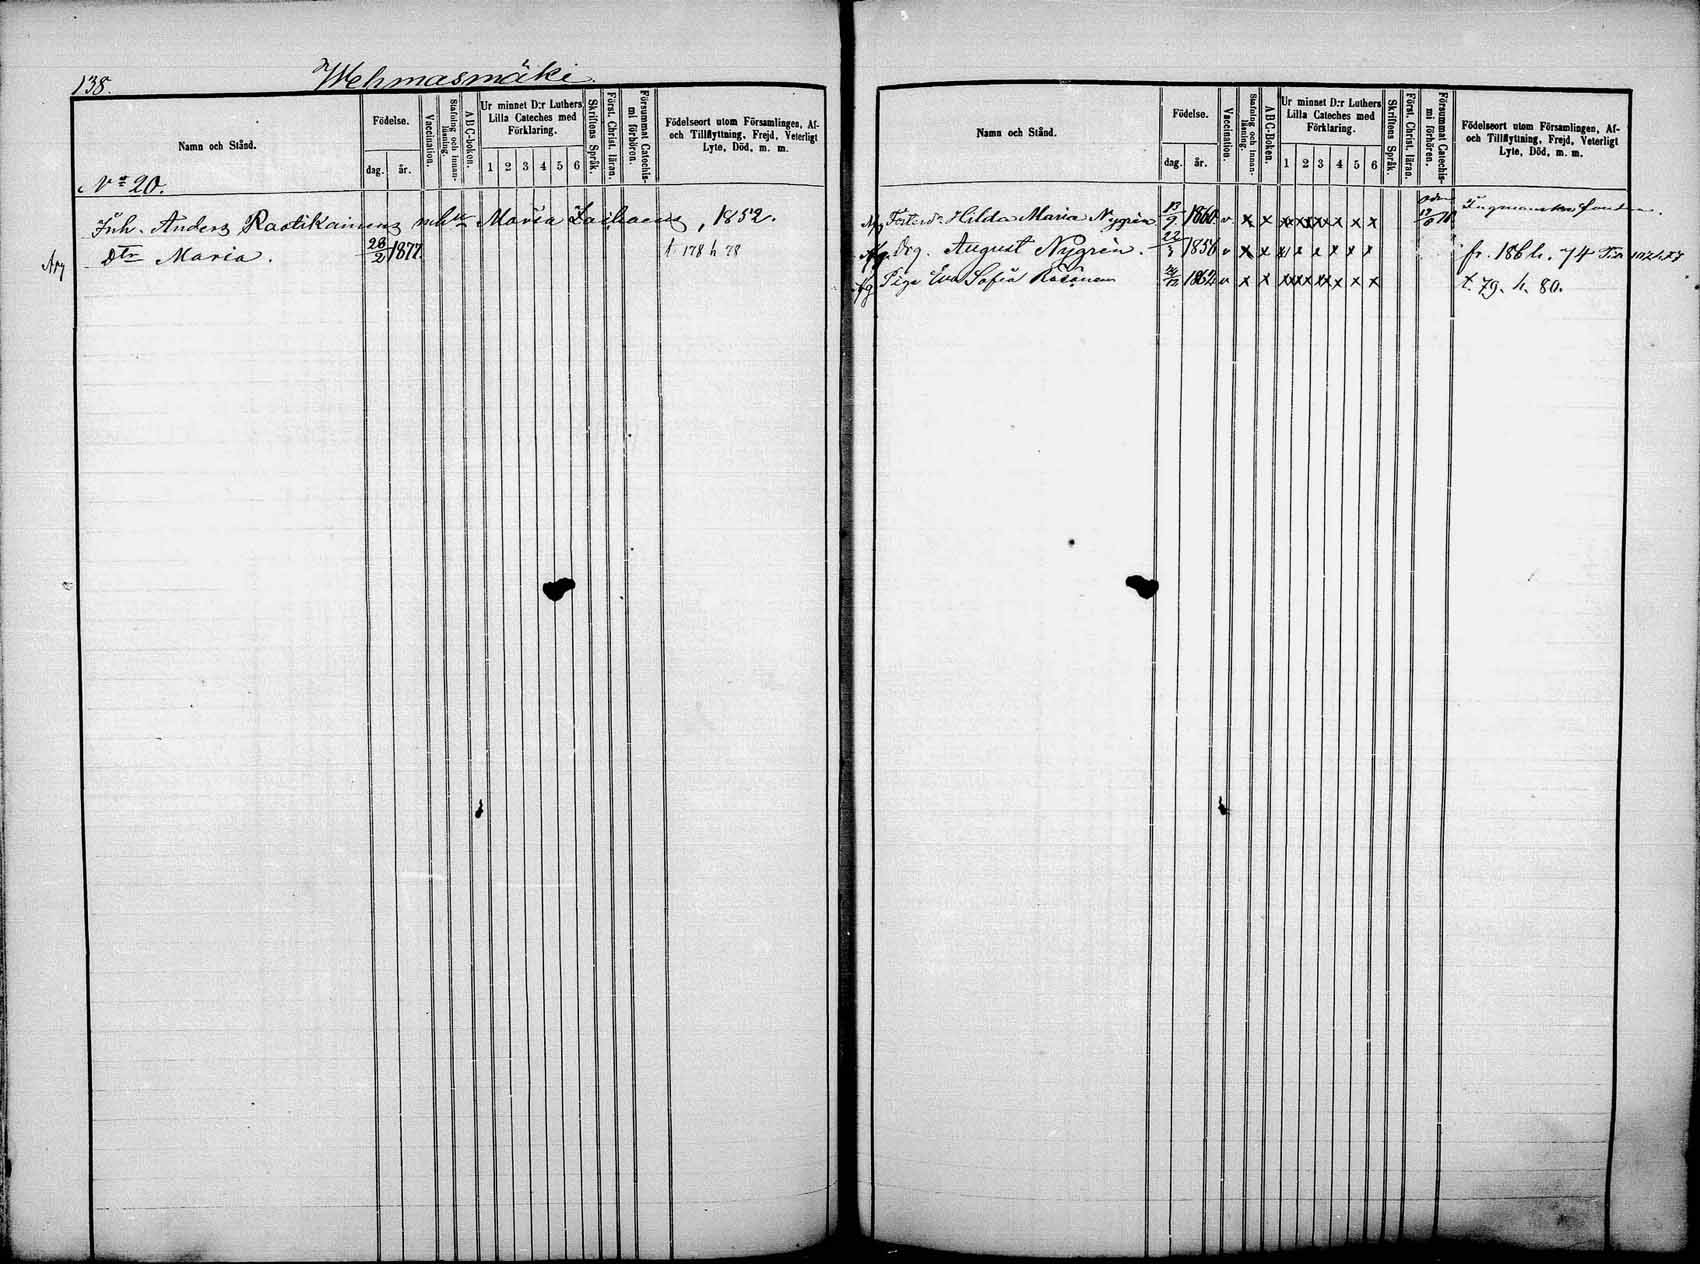 138.
Wehmasmäki
Namn och Stånd.
Födelse.
dag. år.
Vaccination.
Stafning och innan-läsning.
ABC-boken.
Ur minnet D:r Luthers Lilla Cateches med Förklaring.
1 2 3 4 5 6
Skriftens Språk.
Först. Christ. läran.
Försummat Catechis-mi förhören.
Födelseort utom Församlingen, Af- och Tillflyttning, Frejd, Veterligt Lyte, Död, m. m.
No 20.
Inh. Anders Rastikainens Maria , 1852.
Dtr Maria. 28/2 1877. t. 178 h 78
Namn och Stånd.
Födelse.
dag. år.
Vaccination.
Stafning och innan-läsning.
ABC-Boken.
Ur minnet D:r Luthers Lilla Cateches med Förklaring.
1 2 3 4 5 6
Skriftens Språk.
Först. Christ. läran.
Försummat Catechis-mi förhören.
Födelseort utom Församlingen, Af- och Tillflyttning, Frejd, Veterligt Lyte, Död, m. m.
Hilda Maria Nygrén 13/9 1860 v x x x x x x x x
Drg. August Nygrén. 1856 v x x x x x x x x fr. 186 h. 74
Piga Eva Sofia Räsänen 1862 v x x x x x x x x t. 79. h. 80.